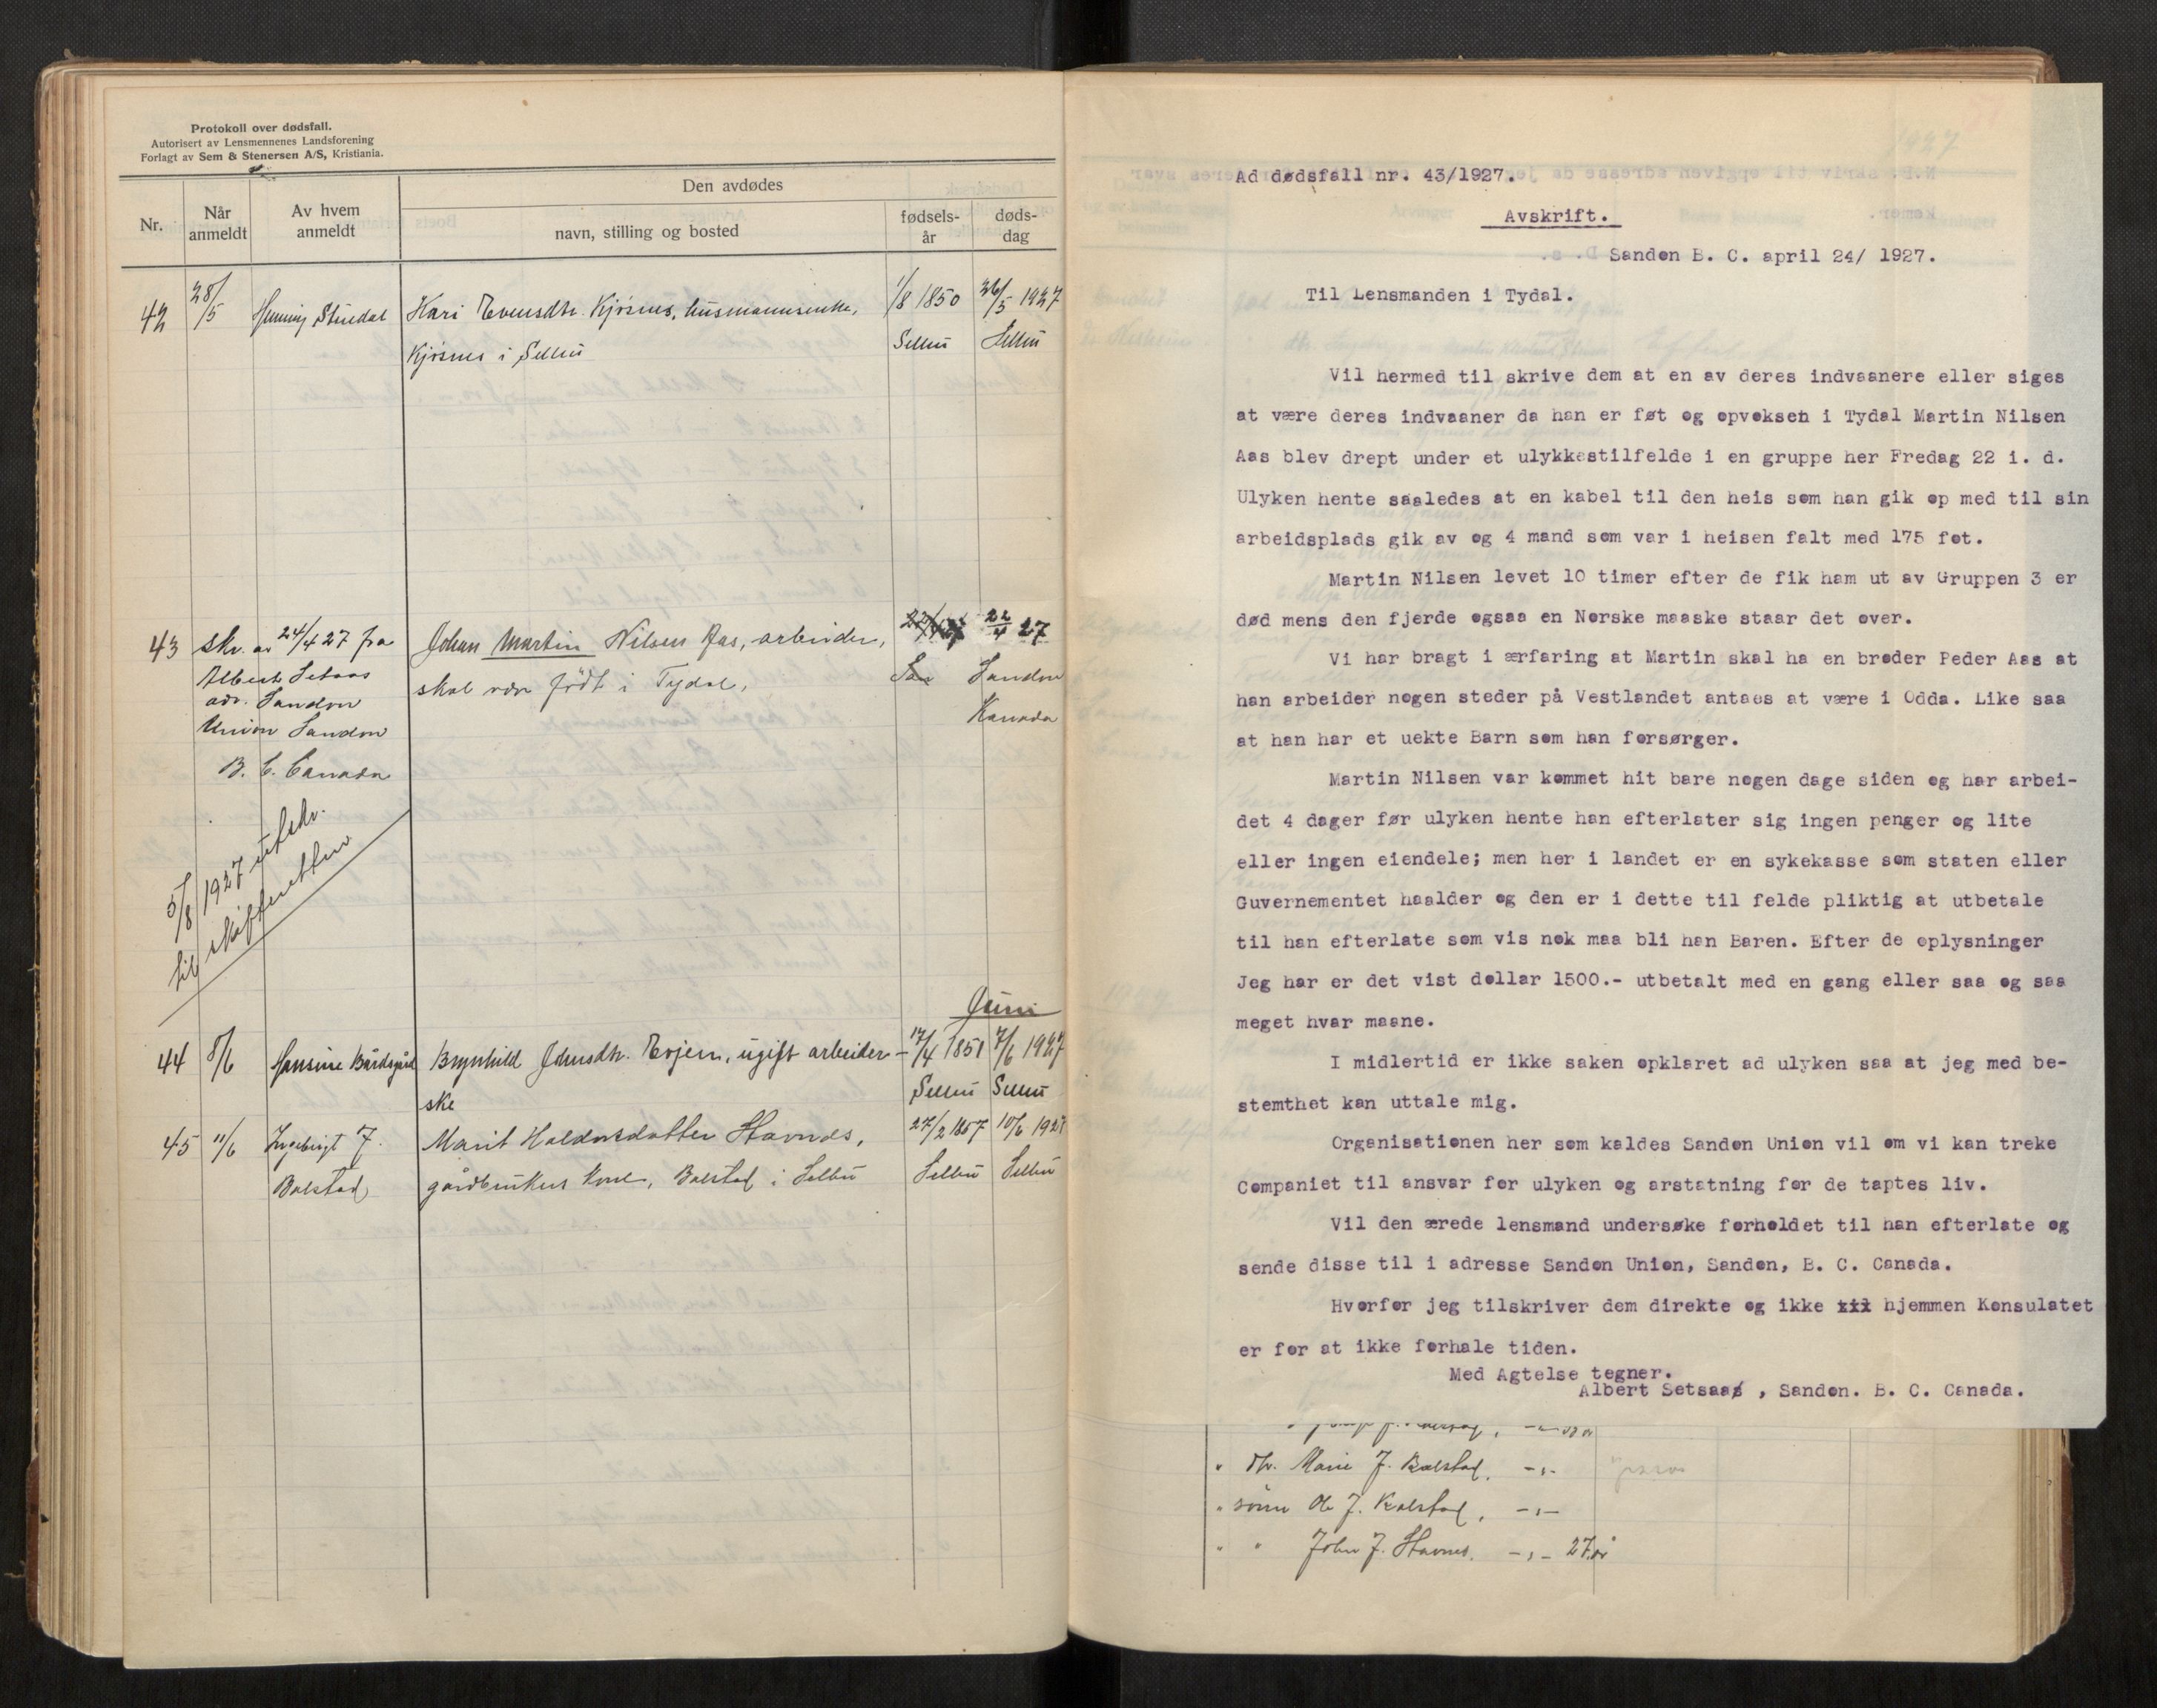 Protokoll over dødsfall.
Autorisert av Lensmennenes Landsforening
Forlagt av Sem & Stenersen A/S, Kristiania.
Nr.
Når
anmeldt
Av hvem
anmeldt
Den avdødes
navn, stilling og bosted
fødsels-
år
døds-
dag
42 28/5 Henning Stuedal Kari Evensdtr. Kjøsnes, husmannsenke, 1/8 1850 26/5 1927
Kjøsnes i Selbu Selbu Selbu
43 skr. av 24/4 27 fra Johan Martin Nilsen Aas, arbeider, 22/4 27
Albert Setsaas skal være födt i Tydal, Sandon
adr. Sandon Kanada
Union Sandon
B. C. Canada
5/8 1927 utskr.
til skifteretten
Juni
44 8/6 Hansine Bårdsgård Brynhild Johnsdtr. Evjen, ugift arbeider- 17/4 1851 7/6 1927
ske Selbu Selbu
45 11/6 Ingebrigt J. Marit Haldorsdatter Stavnes, 27/2 1867 10/6 1927
Balstad gårdbrukers kone, Balstad i Selbu Selbu Selbu
Ad dødsfall nr. 43/1927.
Avskrift.
Sandon B. C. april 24/ 1927.
Til Lensmanden i Tydal.
Vil hermed til skrive dem at en av deres indvaanere eller siges
at være deres indvaaner da han er føt og opvoksen i Tydal Martin Nilsen
Aas blev drept under et ulykkestilfelde i en gruppe her Fredag 22 i. d.
Ulyken hente saaledes at en kabel til den heis som han gik op med til sin
arbeidsplads gik av og 4 mand som var i heisen falt med 175 fot.
Martin Nilsen levet 10 timer efter de fik ham ut av Gruppen 3 er
død mens den fjerde ogsaa en Norske maaske staar det over.
Vi har bragt i ærfaring at Martin skal ha en brøder Peder Aas at
han arbeider nogen steder på Vestlandet antaes at være i Odda. Like saa
at han har et uekte Barn som han forsørger.
Martin Nilsen var kommet hit bare nogen dage siden og har arbei-
det 4 dager før ulyken hente han efterlater sig ingen penger og lite
eller ingen eiendele; men her i landet er en sykekasse som staten eller
Guvernementet haalder og den er i dette til felde pliktig at utbetale
til han efterlate som vis nok maa bli han Baren. Efter de oplysninger
Jeg har er det vist dollar 1500.- utbetalt med en gang eller saa og saa
meget hvar maane.
I midlertid er ikke saken opklaret ad ulyken saa at jeg med be-
stemthet kan uttale mig.
Organisationen her som kaldes Sandon Union vil om vi kan treke
Companiet til ansvar for ulyken og arstatning for de taptes liv.
Vil den ærede lensmand undersøke forholdet til han efterlate og
sende disse til i adresse Sandon Union, Sandon, B. C. Canada.
Hvorfor jeg tilskriver dem direkte og ikke til hjemmen Konsulatet
er for at ikke forhale tiden.
Med Agtelse tegner.
Albert Setsaas , Sandon. B. C. Canada.
" dtr. Marie J. Balstad, -"-
" sönn Ole J. Balstad, -"-
" " John J. Stavnes, -"- 27 år